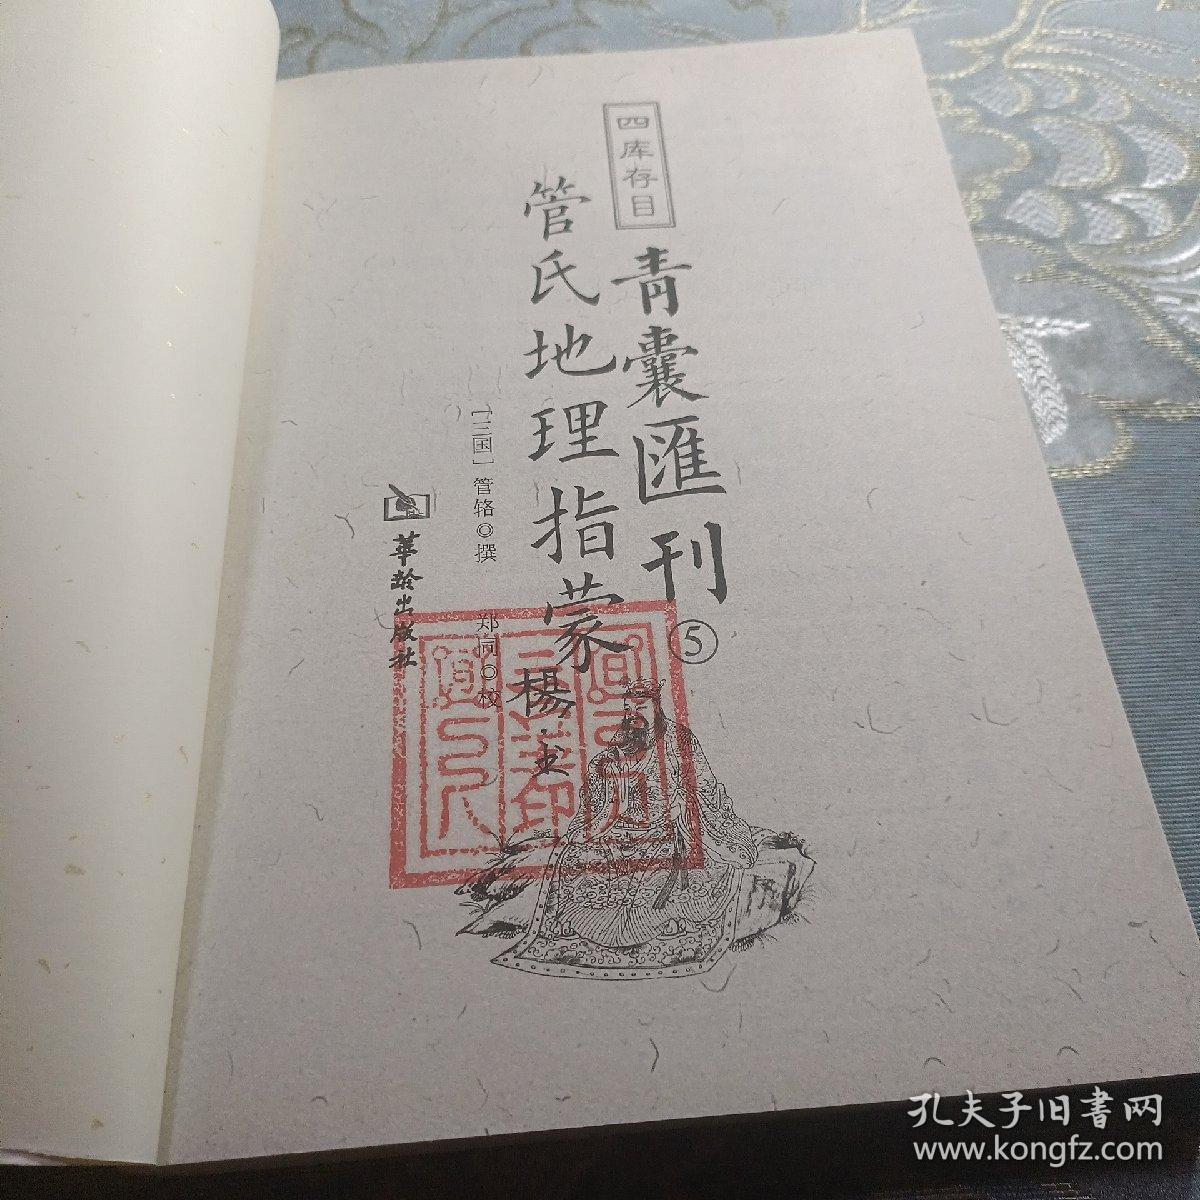 四库存目
青囊匯刊⑤
管氏地理指蒙
［三国］管辂◎撰
郑同◎校
華齡出版社
孔夫子旧書网
www.kongfz.com